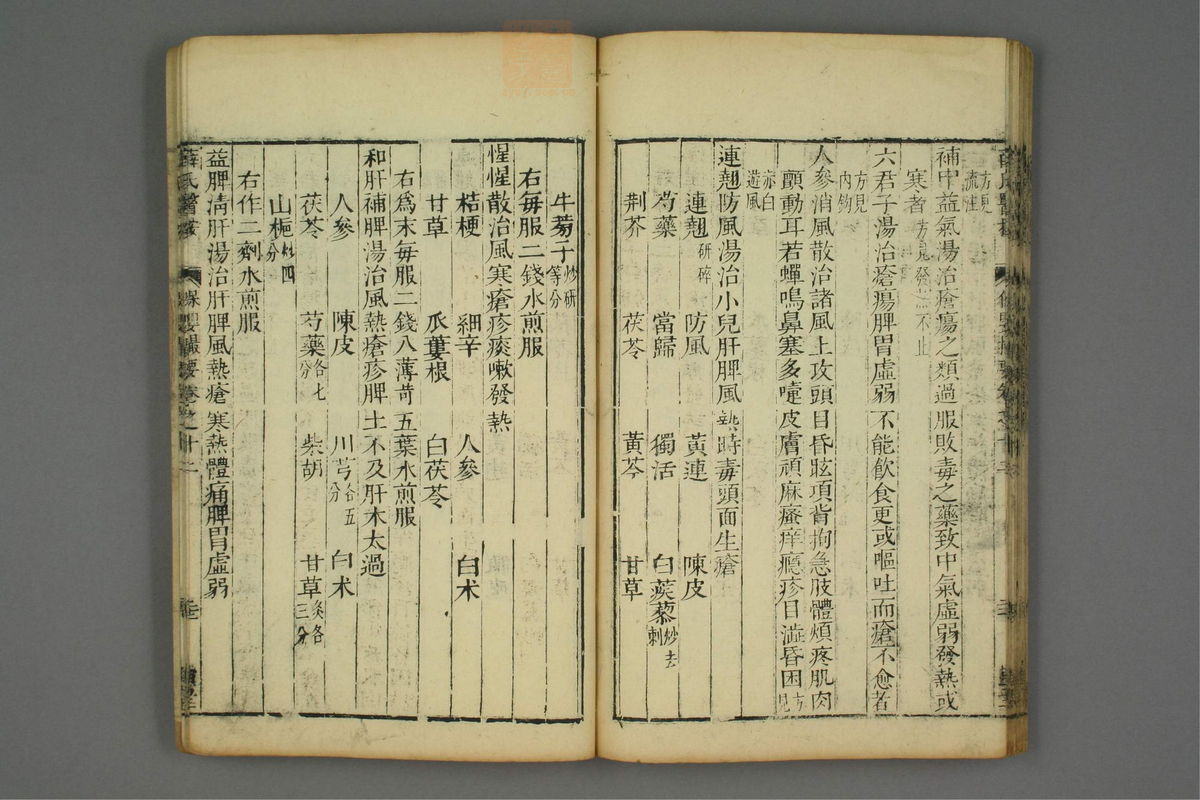 方見
流注
補中益氣湯治瘡瘍之類過服敗毒之藥致中氣虛弱發熱或
寒者方見發熱不止
六君子湯治瘡瘍脾胃虛弱不能飲食更或嘔吐而瘡不愈者
方見
內釣
人參消風散治諸風上攻頭目昏眩項背拘急肢體煩疼肌肉
顫動耳若蟬鳴鼻塞多嚏皮膚頑麻瘙痒癮疹目澁昏困方見
赤白
遊風
連翹防風湯治小兒肝脾風熱時毒頭面生瘡
連翹研碎 防風 黃連 陳皮
芍藥 當歸 獨活 白蒺藜炒去刺
荆芥 茯苓 黃芩 甘草
牛蒡子炒研等分
右每服二錢水煎服
惺惺散治風寒瘡疹痰嗽發熱
桔梗 細辛 人參 白术
甘草 瓜蔞根 白茯苓
右爲末每服二錢入薄苛五葉水煎服
和肝補脾湯治風熱瘡疹脾土不及肝木太過
人參 陳皮 川芎各五分 白术
茯苓 芍藥各七分 柴胡 甘草炙各三分
山梔炒四分
右作二劑水煎服
益脾清肝湯治肝脾風熱瘡寒熱體痛脾胃虛弱
薛氏醫按 保嬰撮要卷之十二